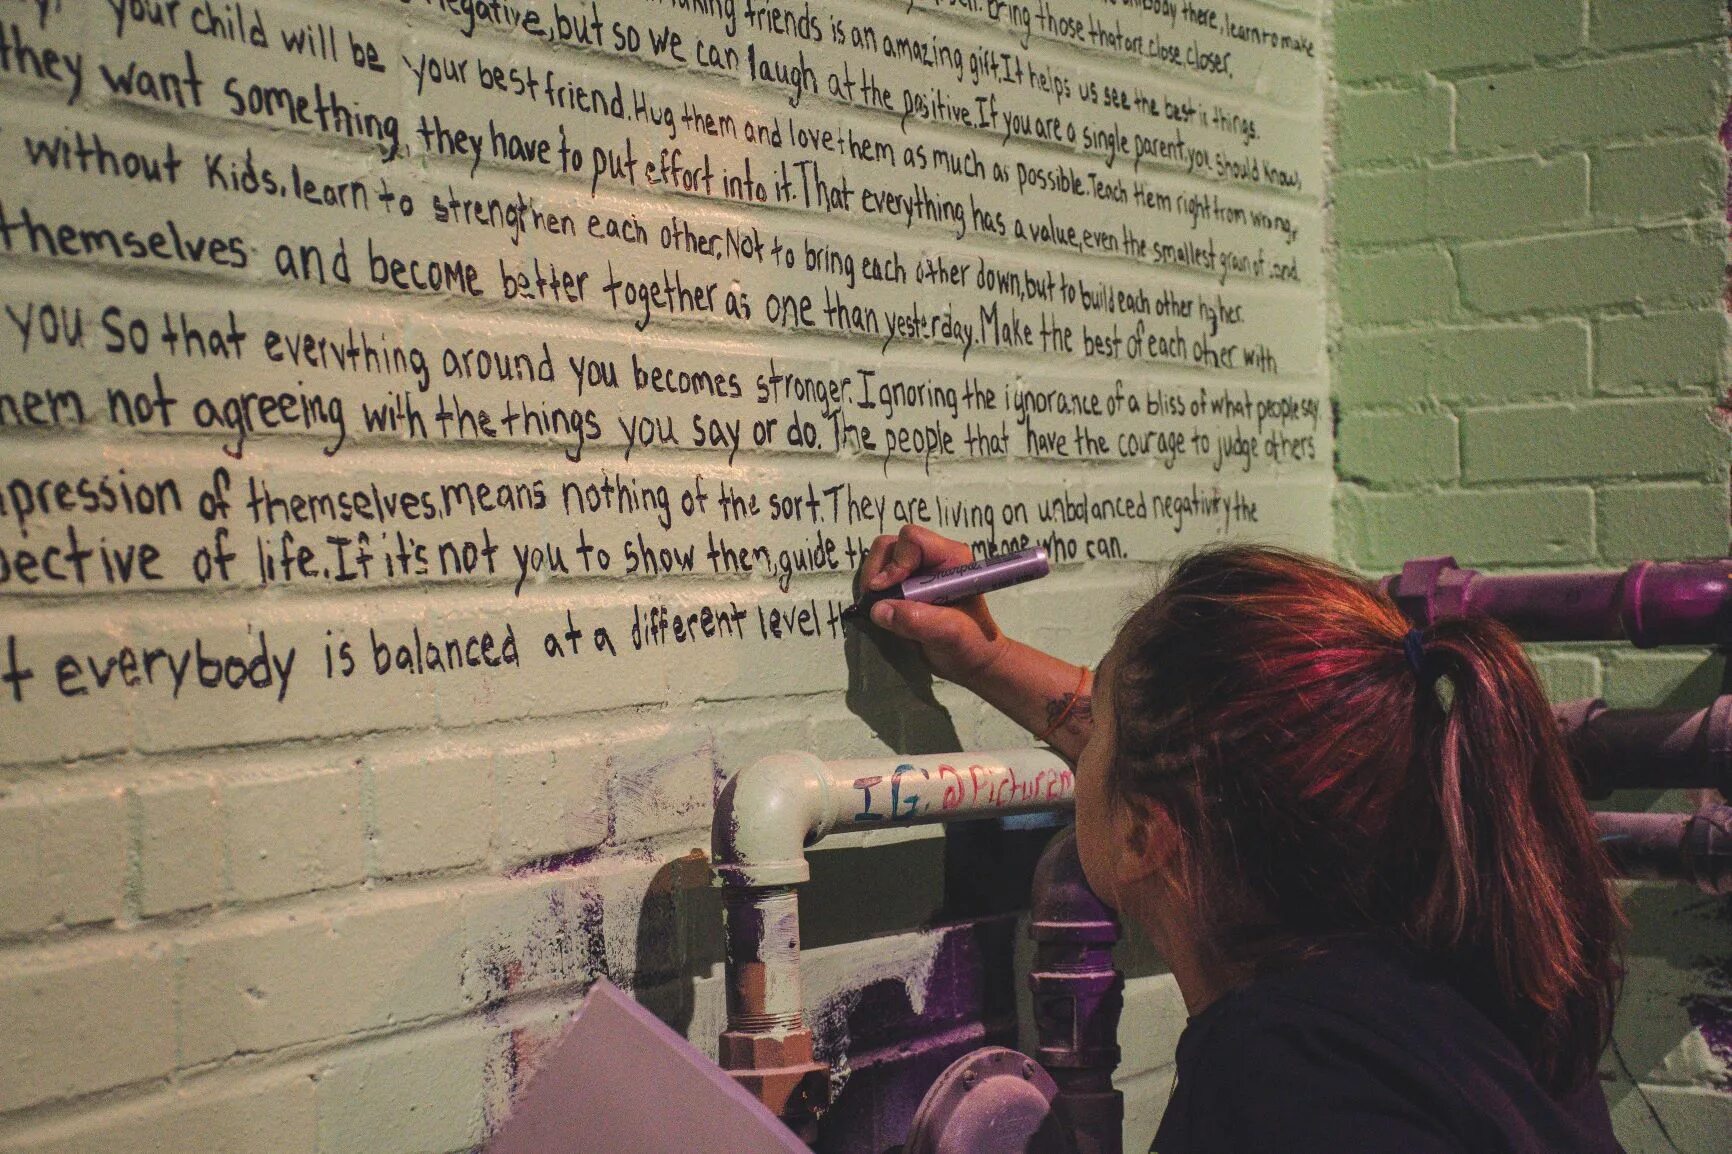 body there, learn to make
making friends is an amazing gift. It helps us see the best in things.
bring those that are close, closer.
your child will be
negative, but so we can laugh at the positive. If you are a single parent, you should know,
they want something, they have to put effort into it. That everything has a value, even the smallest grain of
your best friend. Hug them and love them as much as possible. Teach them right from wrong,
without Kids, learn to strengthen each other. Not to bring each other down, but to build each other higher.
themselves and become better together as one than yesterday. Make the best of each other with
you so that everything around you becomes stronger. Ignoring the ignorance of a bliss of what people say
not agreeing with the things you say or do. The people that have the courage to judge others
pression of themselves, means nothing of the sort. They are living on unbalanced negativity the
pective of life. If it's not you to show them, guide th meone who can.
t everybody is balanced at a different level th
Sharpie
IG: @Picturem